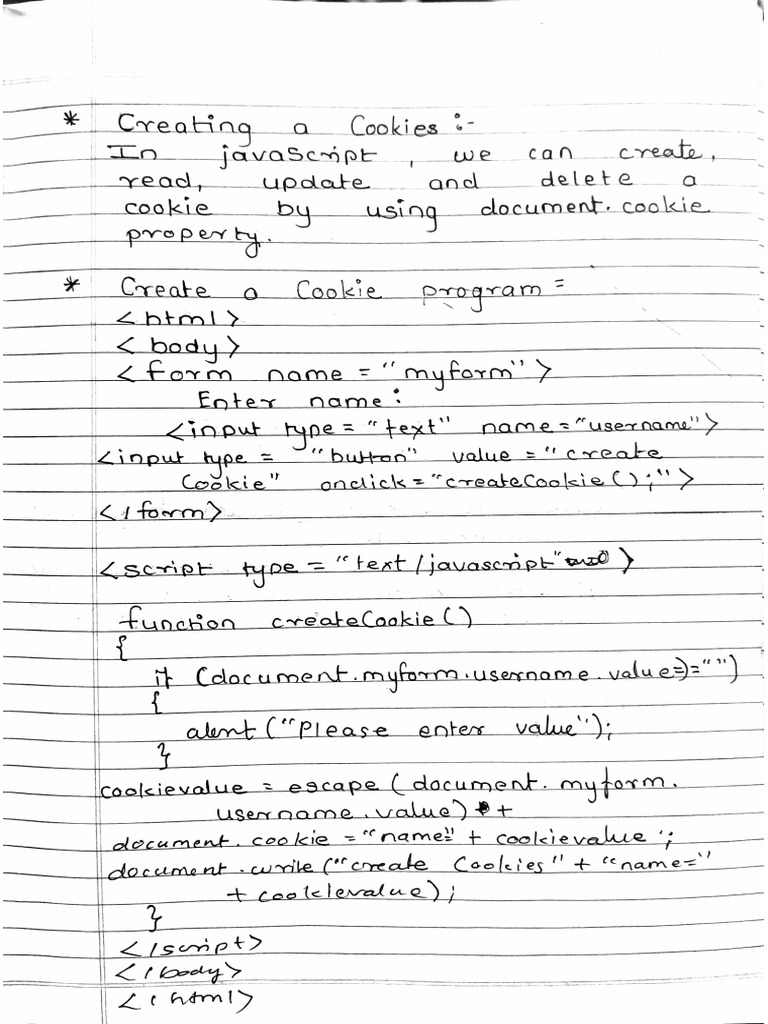 * Creating a Cookies :-
In javaScript, we can create,
read, update and delete a
cookie by using document.cookie
property.
* Create a Cookie program =
<html>
<body>
<form name = "myform">
Enter name:
<input type = "text" name = "username">
<input type = "button" value = "create
Cookie" onclick = "createCookie();">
</form>
<script type = "text/javascript">
function createCookie()
{
if (document.myform.username.value==)="")
{
alent("Please enter value");
}
cookievalue = escape(document.myform.
username.value) +
document.cookie = "name=" + cookievalue;
document.write("create Cookies" + "name="
+ cookievalue);
}
</script>
</body>
</html>